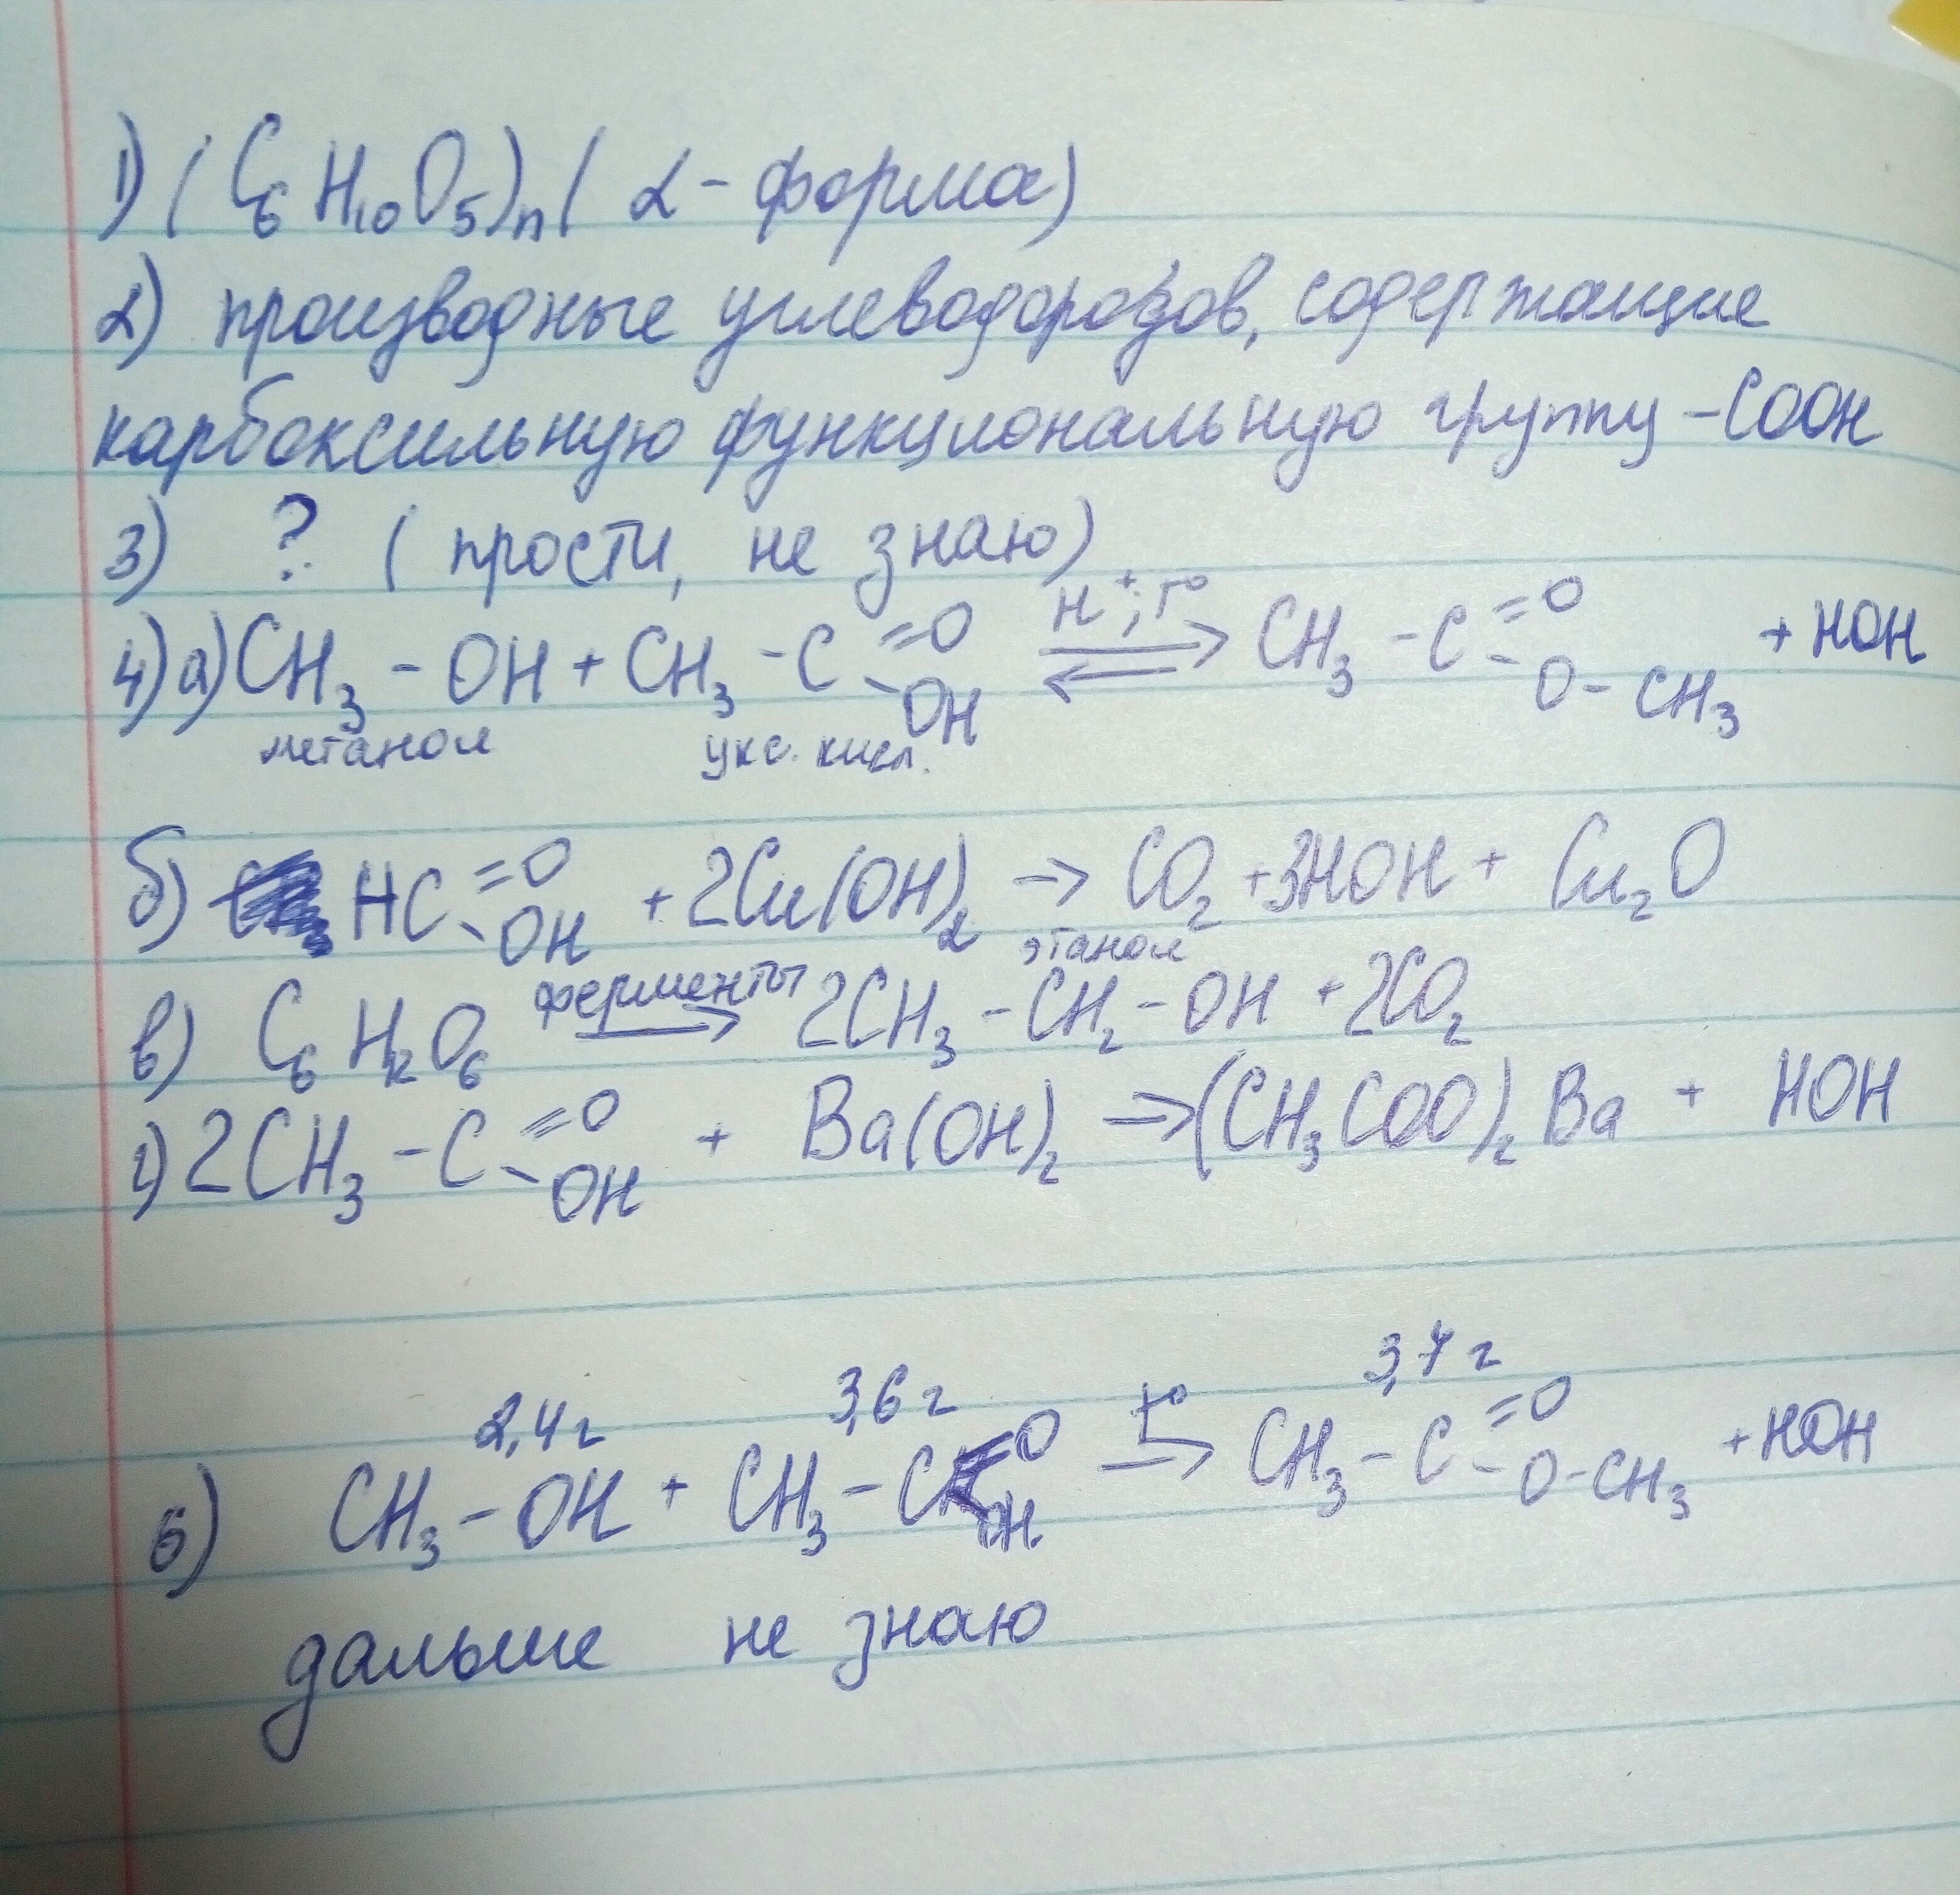 1) (C₆H₁₀O₅)ₙ (α-форма)
2) производные углеводородов, содержащие
карбоксильную функциональную группу -COOH
3) ? (прости, не знаю)
4) а) CH₃ - OH + CH₃ - C =O -OH H⁺; t° ⇄ CH₃ - C =O -O - CH₃ + HOH
метанол укс. кисл.
б) HC =O -OH + 2Cu(OH)₂ → CO₂ + 3HOH + Cu₂O
этанол
в) C₆H₁₂O₆ ферменты → 2CH₃ - CH₂ - OH + 2CO₂
г) 2CH₃ - C =O -OH + Ba(OH)₂ → (CH₃COO)₂Ba + HOH
2,4г 3,6г 3,7г
5) CH₃ - OH + CH₃ - C =O OH t° → CH₃ - C =O -O - CH₃ + HOH
дальше не знаю